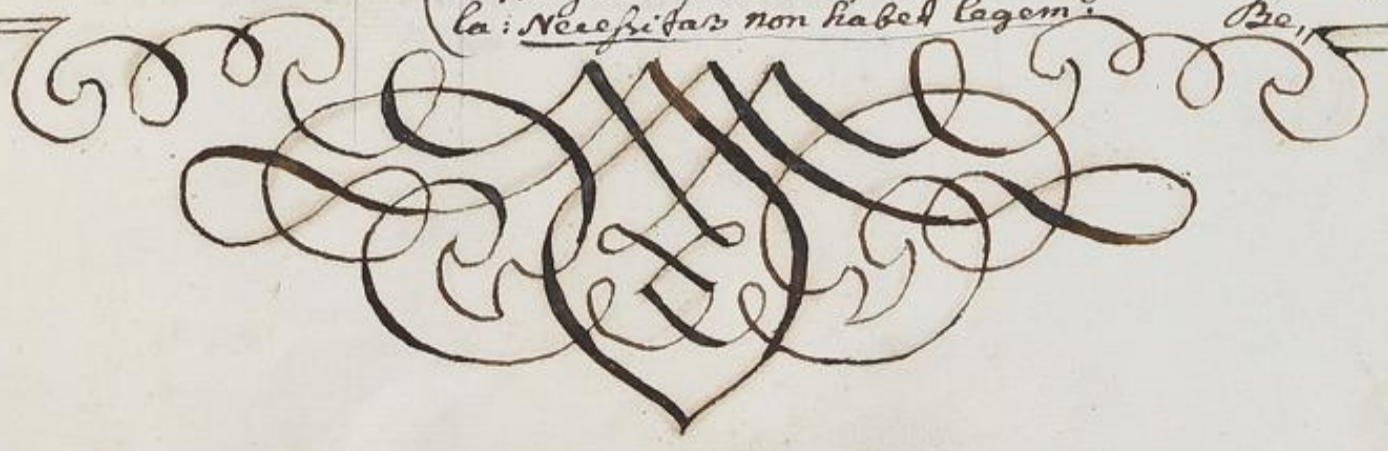 la: Necessitas non habet legem. Be,,